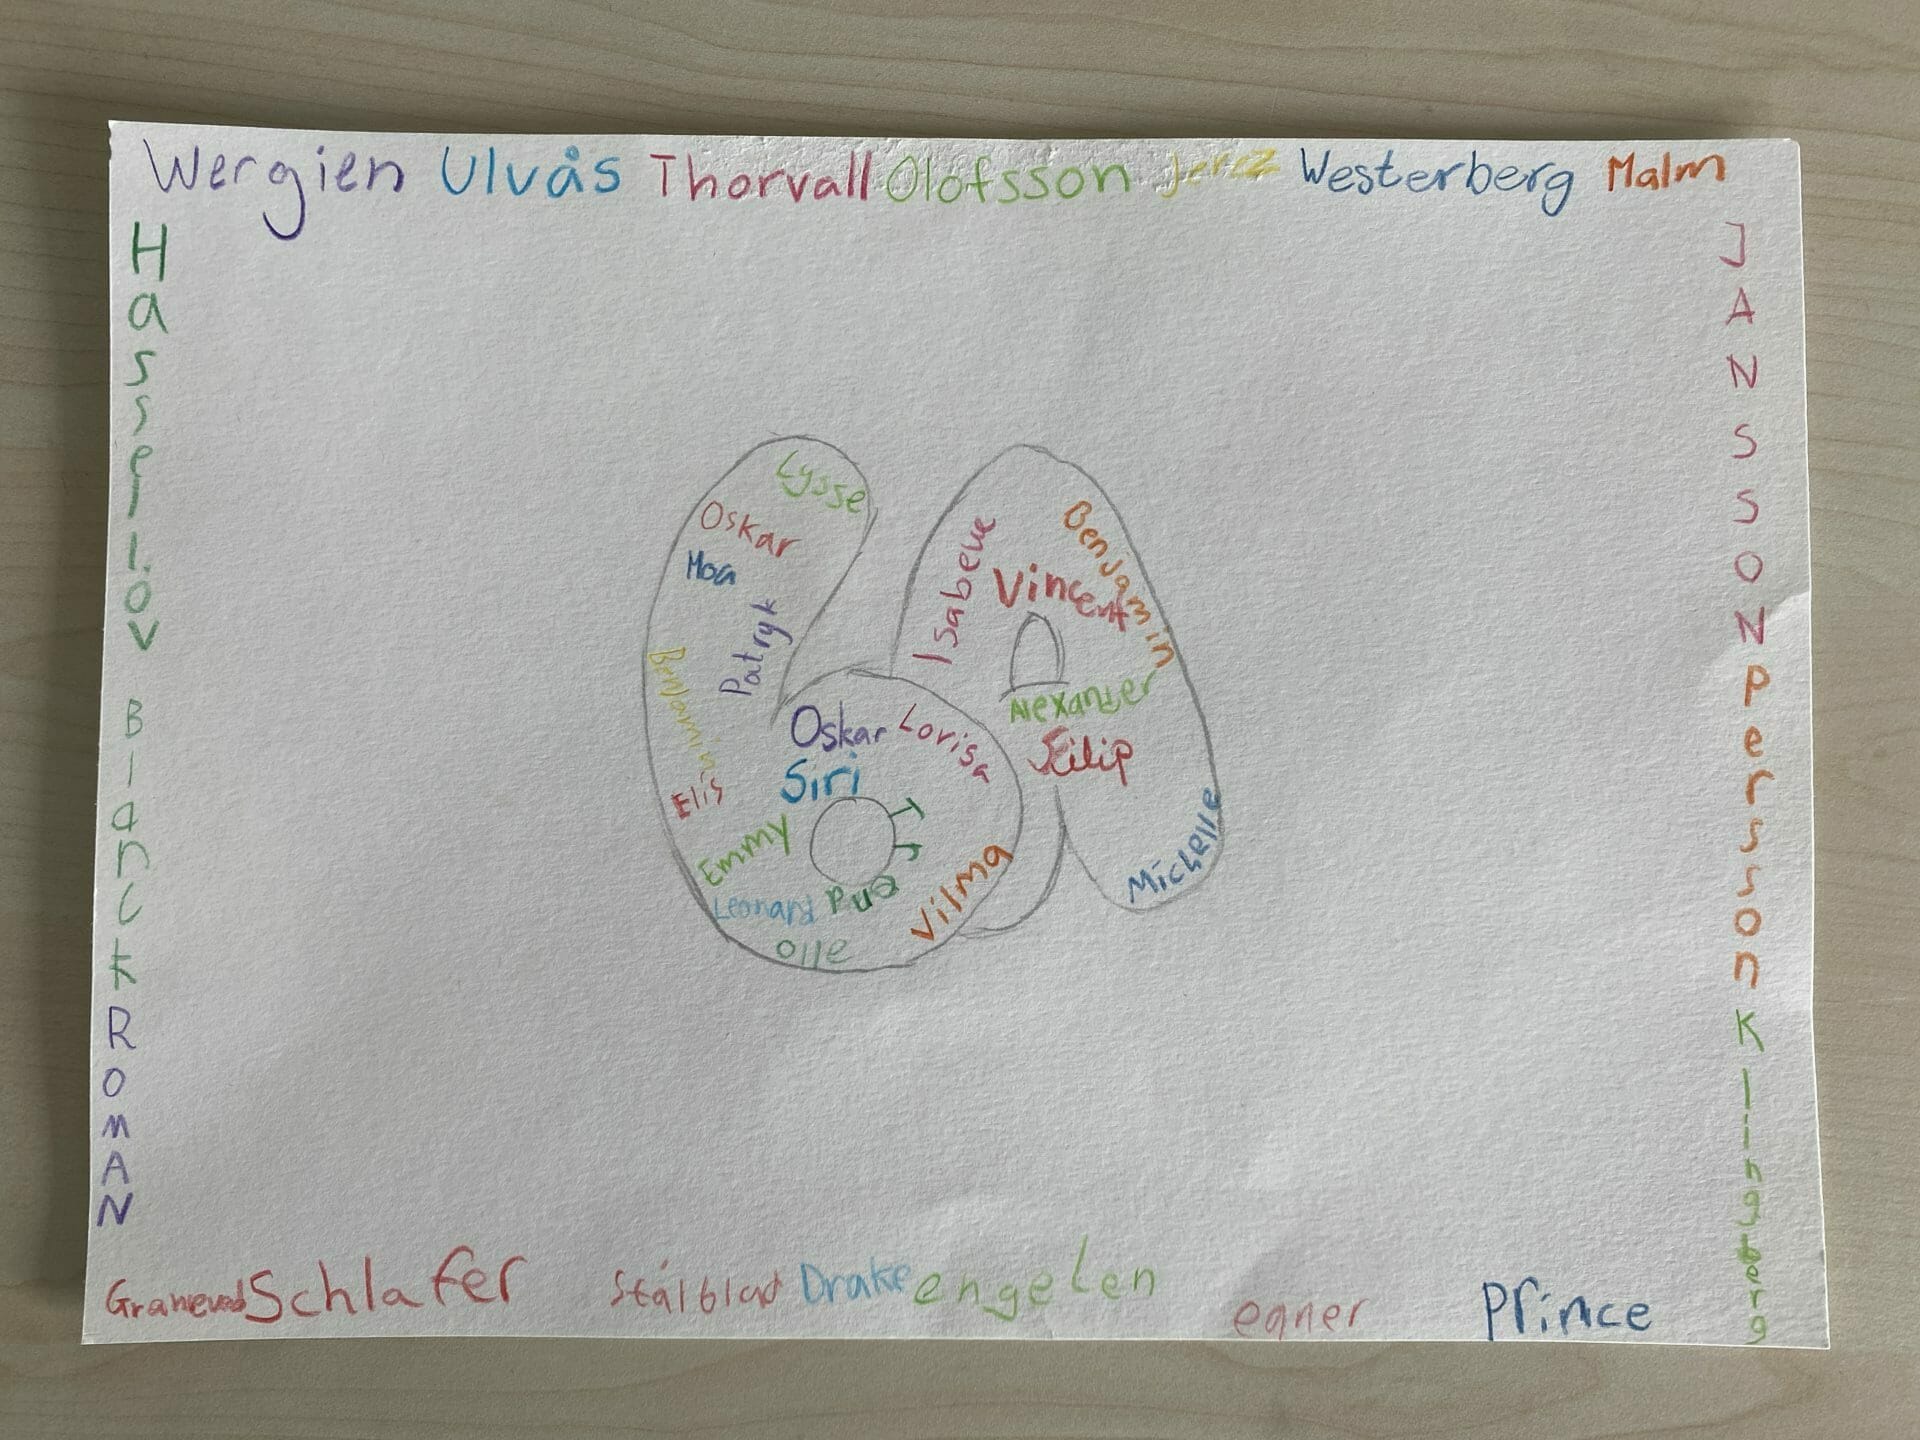 Wergien Ulvås Thorvall Olofsson Jerez Westerberg Malm
Hasselöv
Blanck
ROMAN
JANSSON
Persson
Klingberg
Lysse
Oskar
Moa
Patryk
Benjamin
Elis
Emmy
Leonard
Olle
Oskar
Lovisa
Siri
Vilma
Benjamin
Vincent
Alexander
Filip
Michelle
Schlafer Stålblad Drake engelen egner Prince